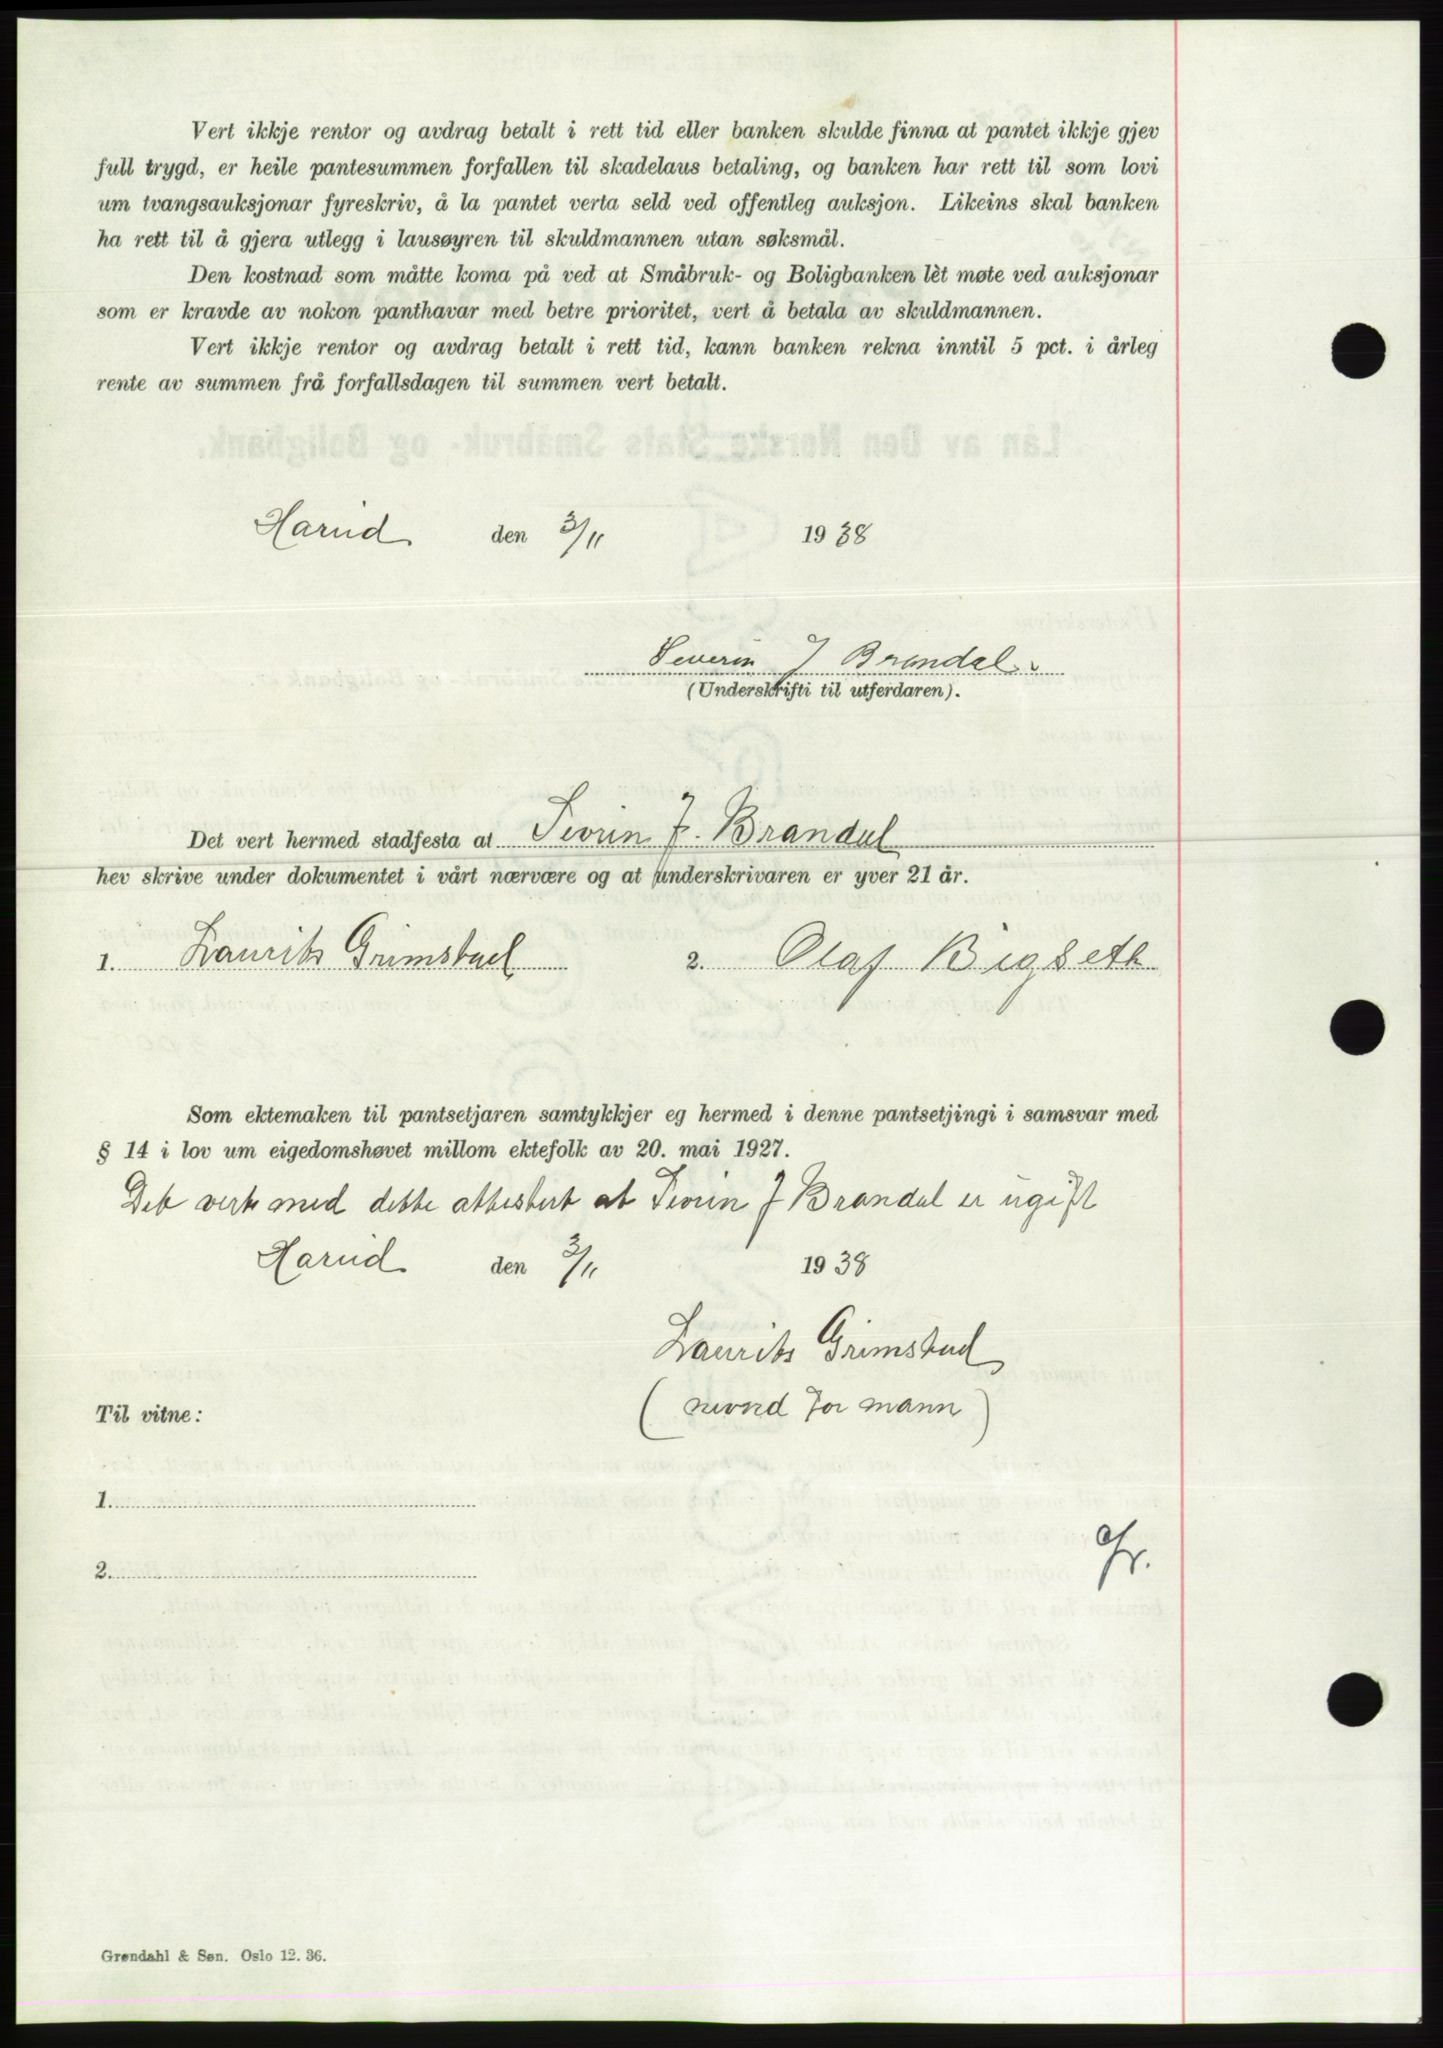 Vert ikkje rentor og avdrag betalt i rett tid eller banken skulde finna at pantet ikkje gjev
full trygd, er heile pantesummen forfallen til skadelaus betaling, og banken har rett til som lovi
um tvangsauksjonar fyreskriv, å la pantet verta seld ved offentleg auksjon. Likeins skal banken
ha rett til å gjera utlegg i lausøyren til skuldmannen utan søksmål.
Den kostnad som måtte koma på ved at Småbruk- og Boligbanken lèt møte ved auksjonar
som er kravde av nokon panthavar med betre prioritet, vert å betala av skuldmannen.
Vert ikkje rentor og avdrag betalt i rett tid, kann banken rekna inntil 5 pct. i årleg
rente av summen frå forfallsdagen til summen vert betalt.
Hareid den 3/11 1938
Severin J Brandal.
(Underskrifti til utferdaren).
Det vert hermed stadfesta at Sevrin J. Brandal
hev skrive under dokumentet i vårt nærvære og at underskrivaren er yver 21 år.
1. Laurits Grimstad 2. Olaf Bigseth
Som ektemaken til pantsetjaren samtykkjer eg hermed i denne pantsetjingi i samsvar med
§ 14 i lov um eigedomshøvet millom ektefolk av 20. mai 1927.
Det vert med dette attestert at Sevrin J Brandal er ugift
Hareid den 3/11 1938
Laurits Grimstad
( for mann )
Til vitne:
1.
2.
Grøndahl & Søn. Oslo 12. 36.